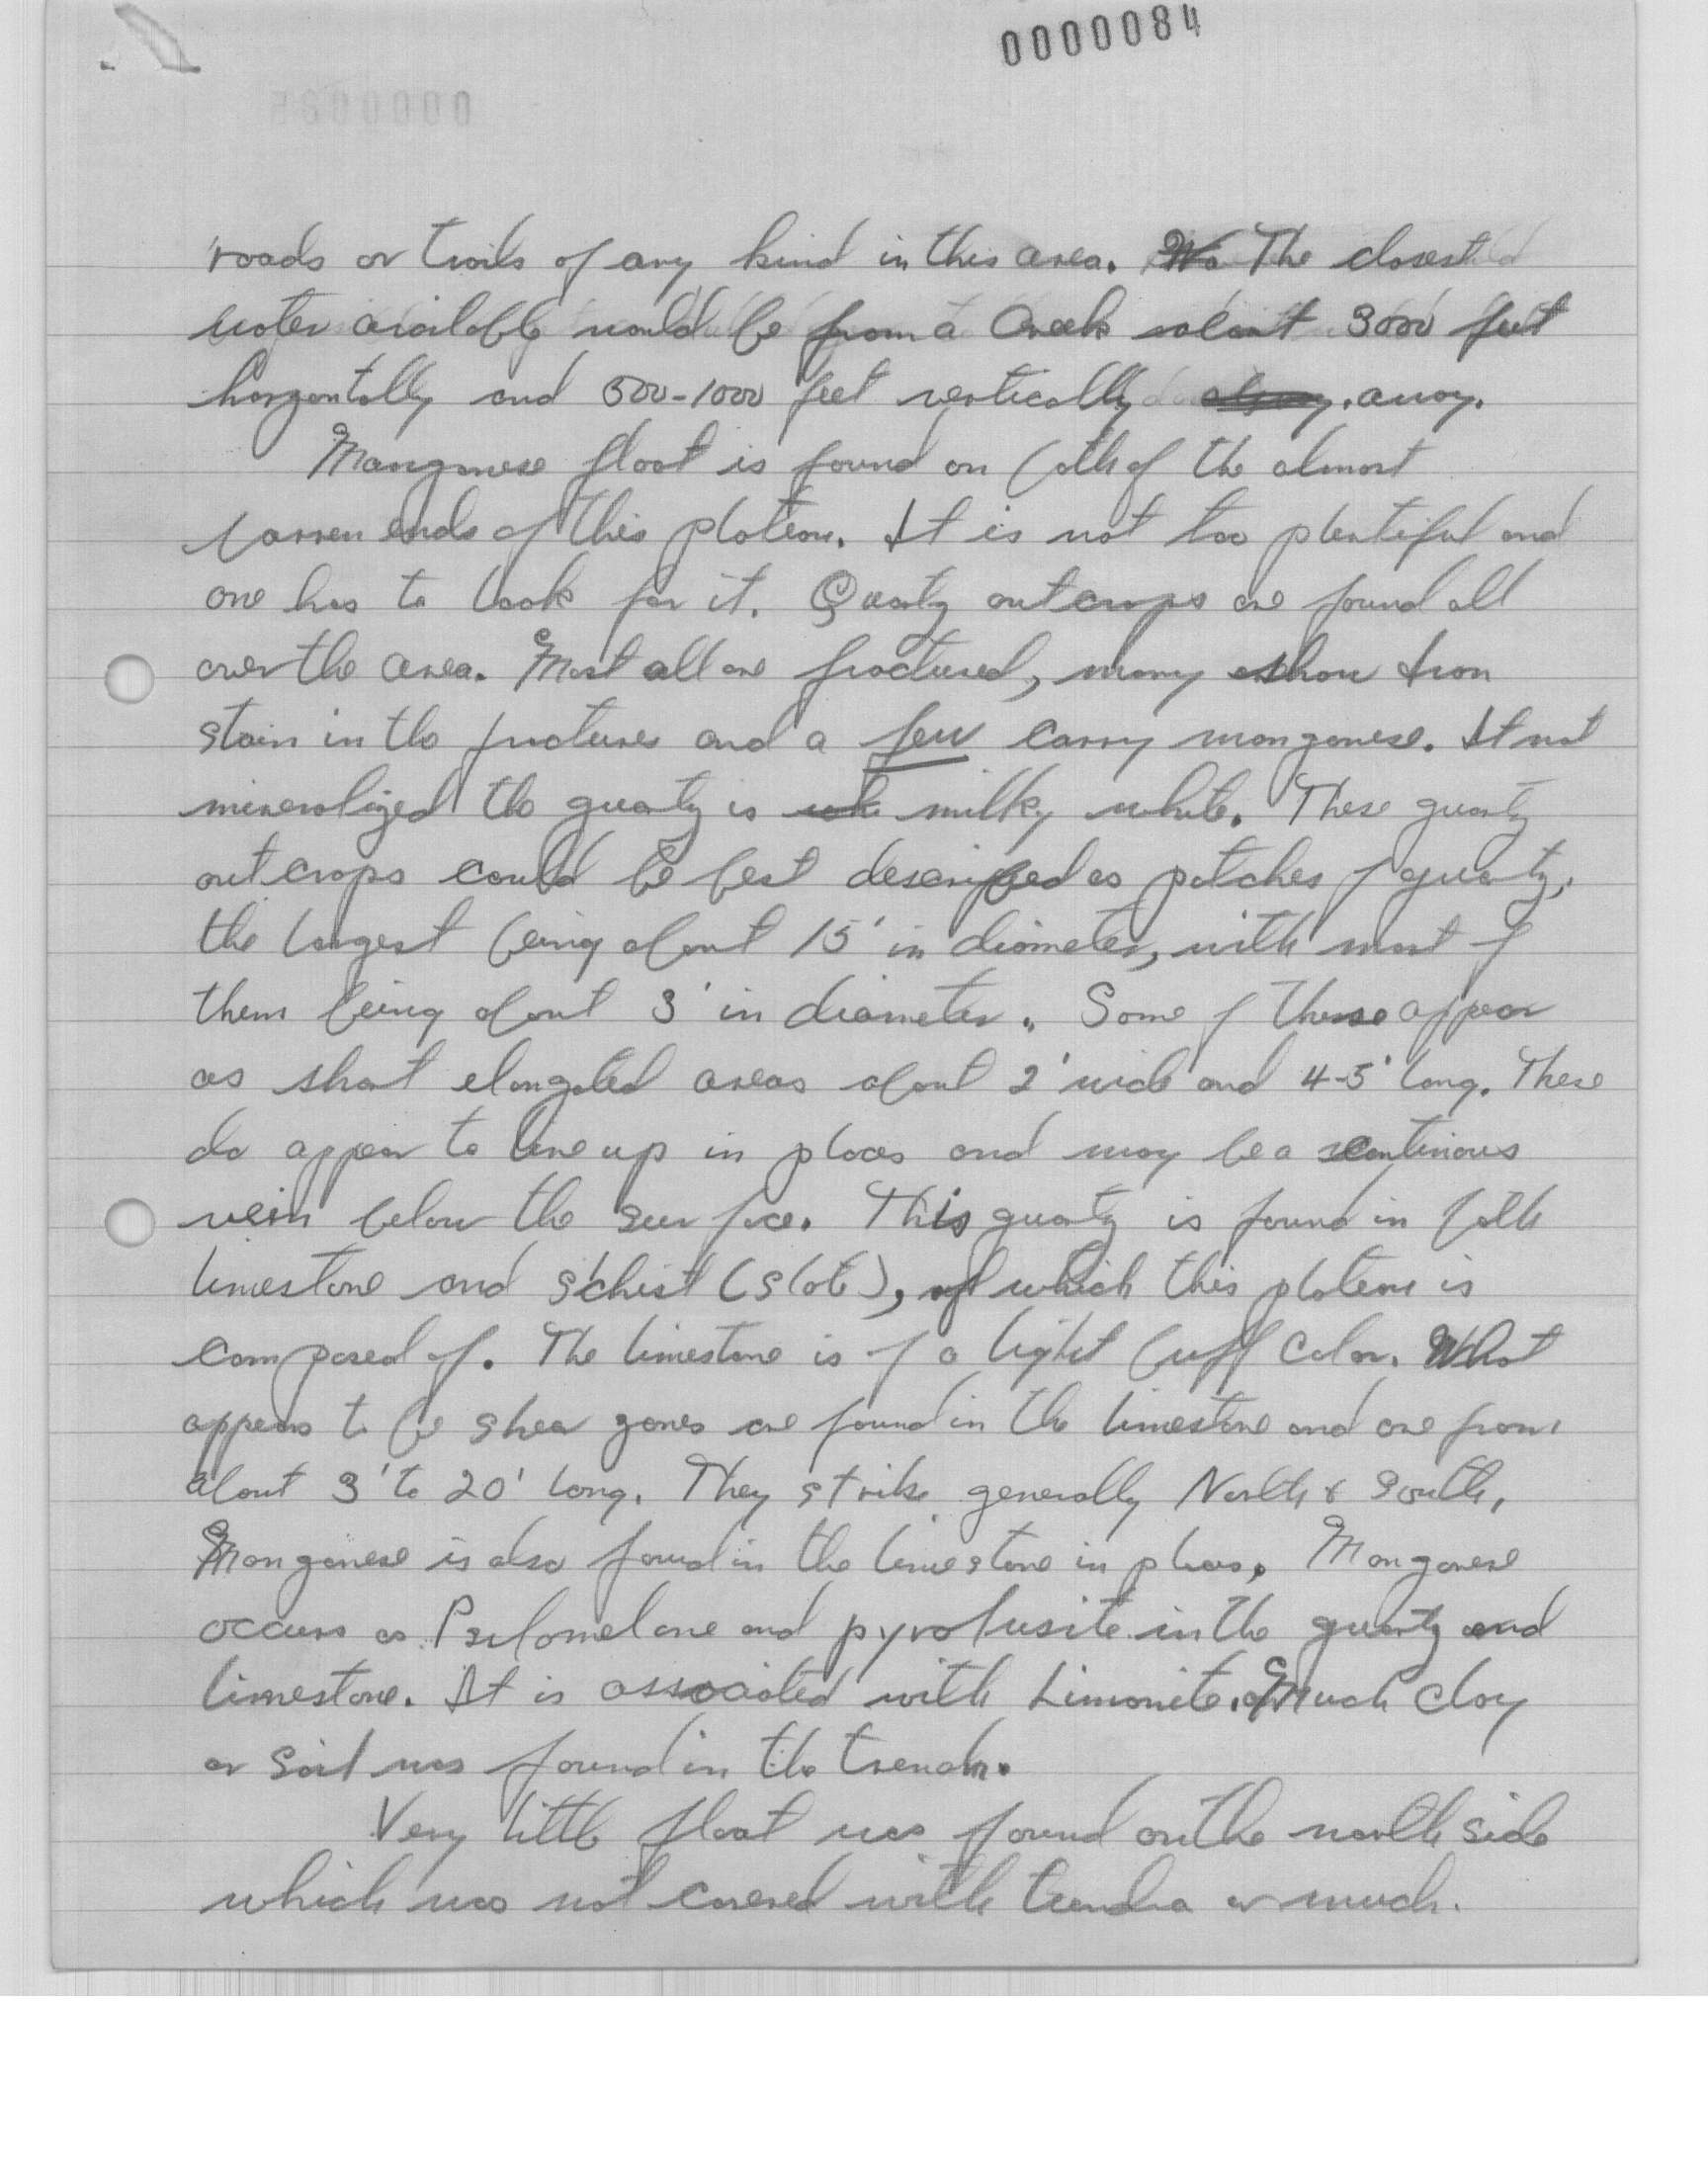 0000084
roads or trails of any kind in this area. The closest
water available would be from a Creek about 3000 feet
horzontally and 500-1000 feet vertically away.
Manganese float is found on both of the almost
barren ends of this plateau. It is not too plentiful and
one has to look for it. Quartz outcrops are found all
over the area. Most all are fractured, many show Iron
stain in the fractures and a few carry manganese. If not
mineralized the quartz is milky white. These quartz
outcrops could be best described as patches of quartz,
the largest being about 15' in diameter, with most of
them being about 3' in diameter. Some of these appear
as short elongated areas about 2' wide and 4-5' long. These
do appear to line up in places and may be a continous
vein below the surface. This quartz is found in both
limestone and schist (slate), of which this plateau is
composed of. The limestone is of a light buff color. What
appears to be shear zones are found in the limestone and are from
about 3' to 20' long. They strike generally North & South.
Manganese is also found in the limestone in places. Manganese
occurs as Psilomelane and pyrolusite in the quartz and
limestone. It is associated with Limonite. Much clay
or soil was found in the trench.
Very little float was found on the north side
which was not covered with tundra or much.